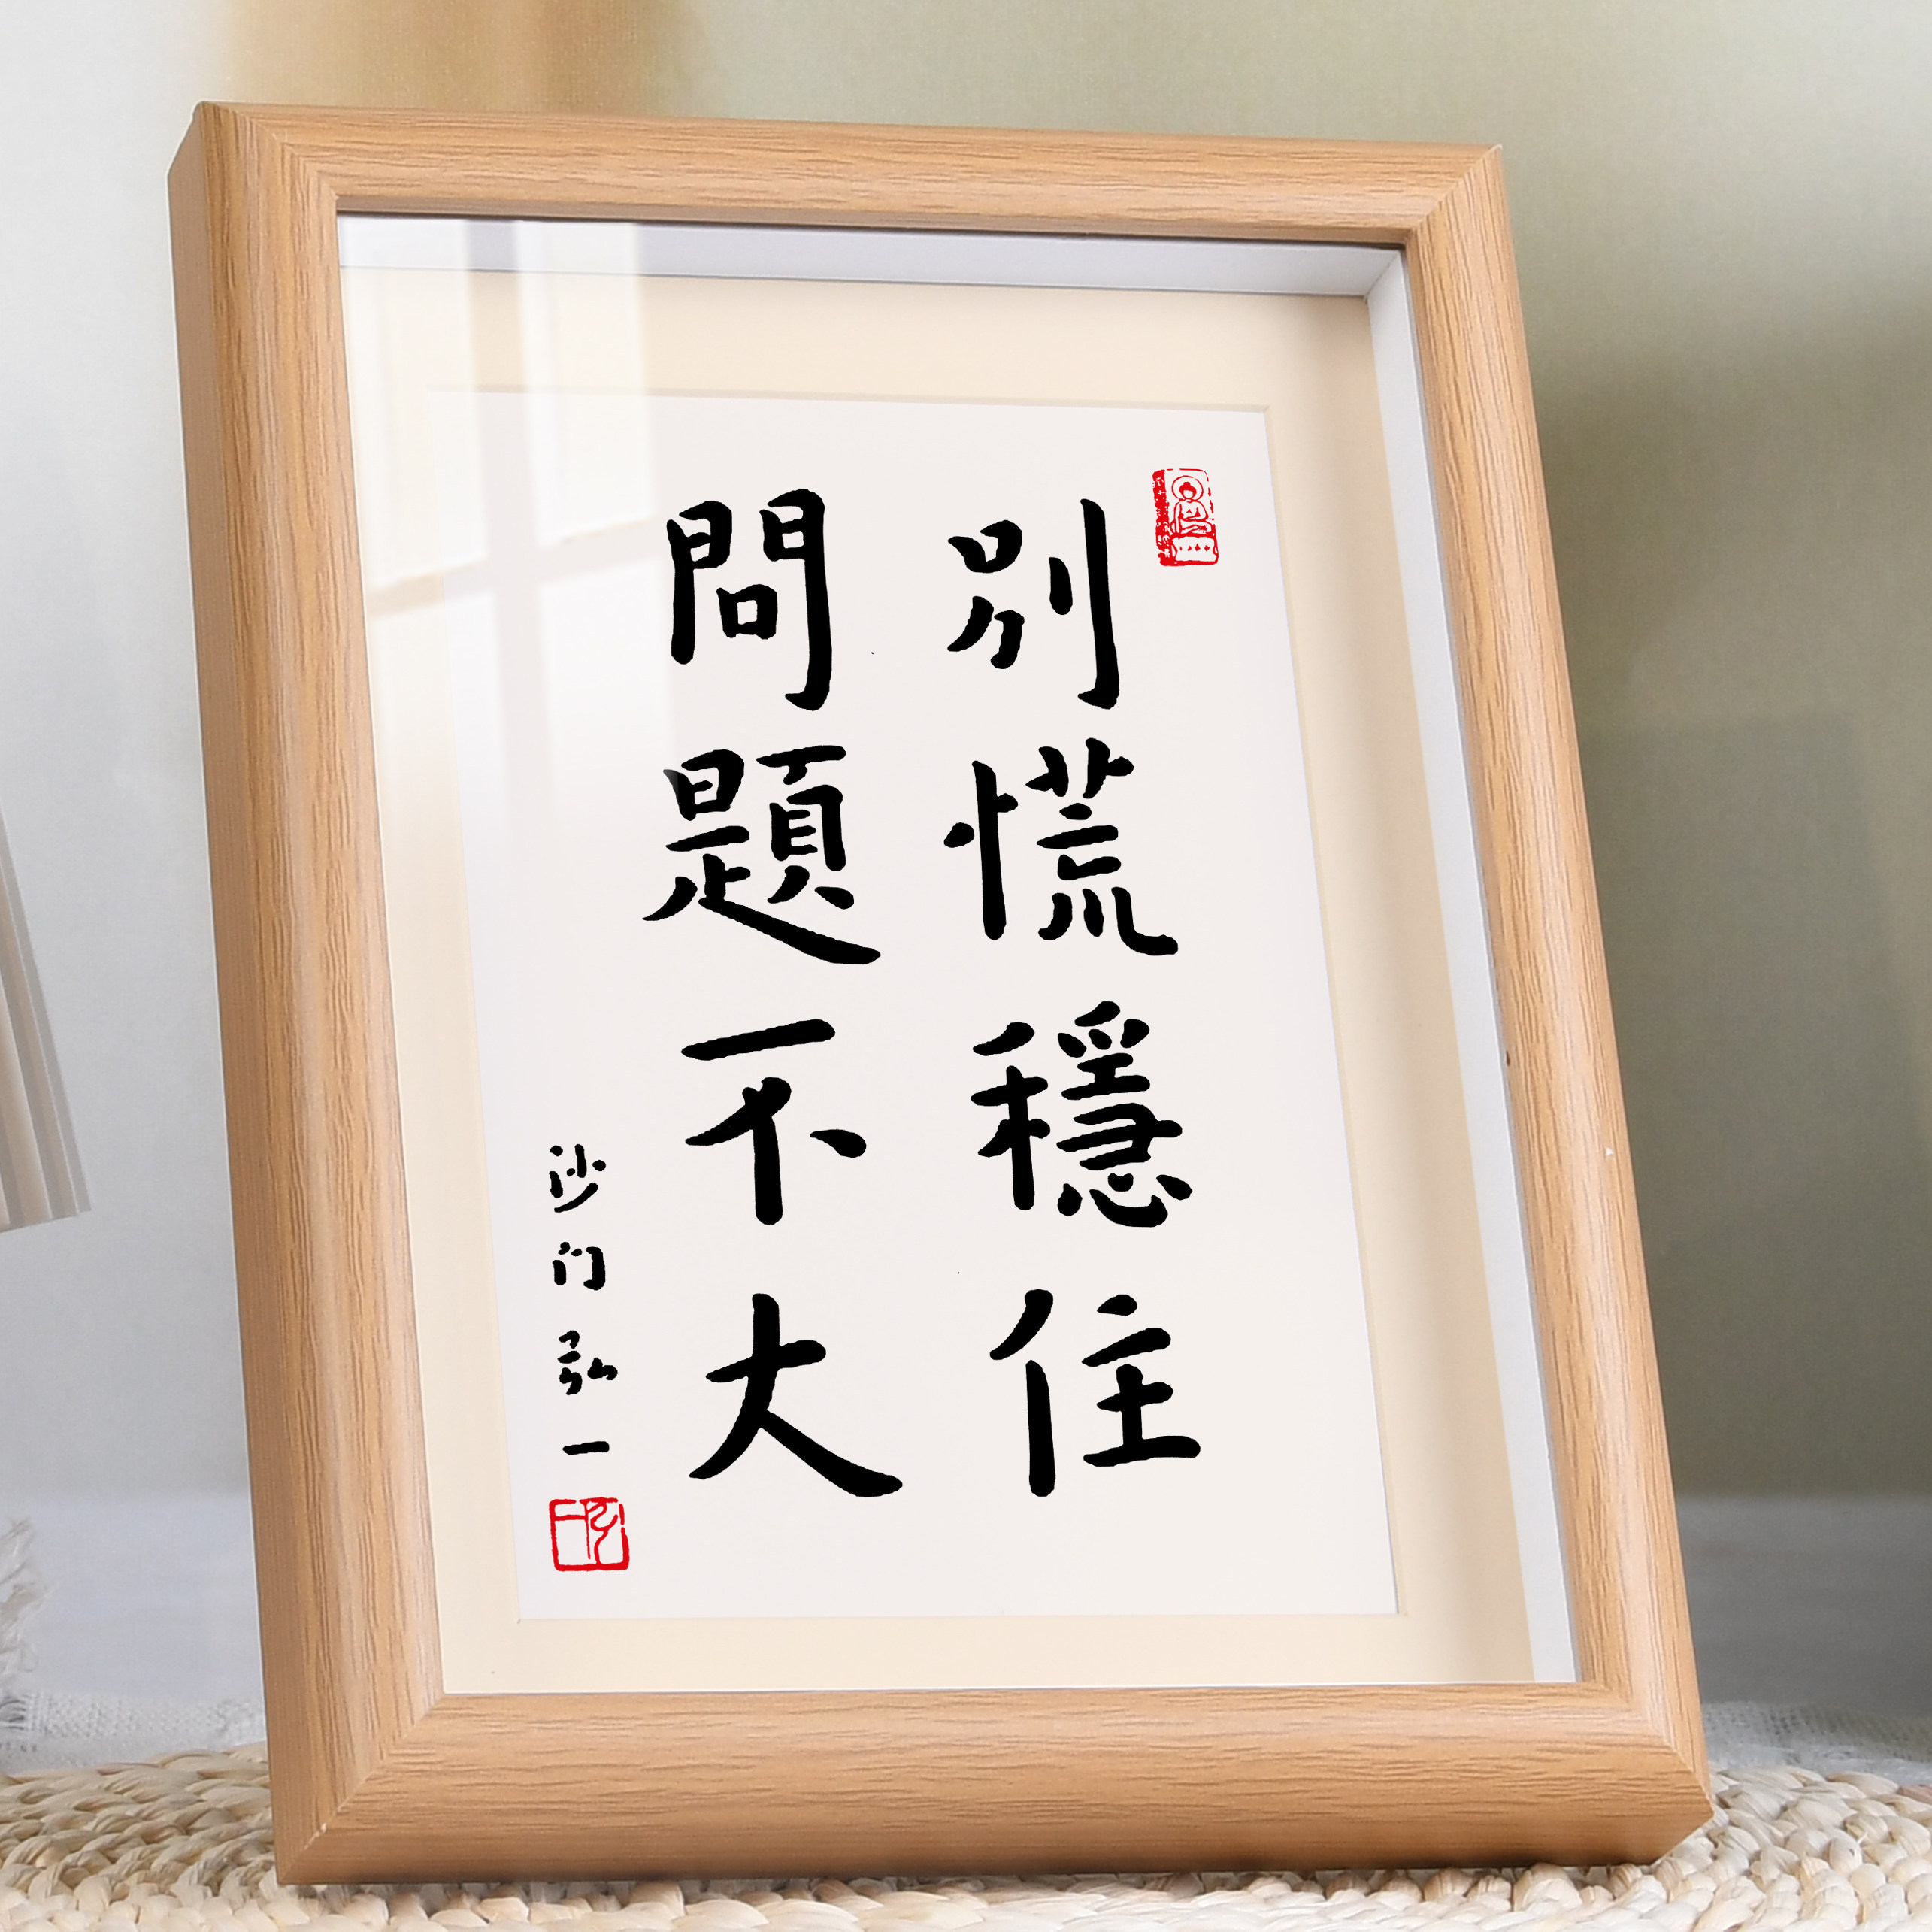 別慌穩住
問題不大
沙门弘一